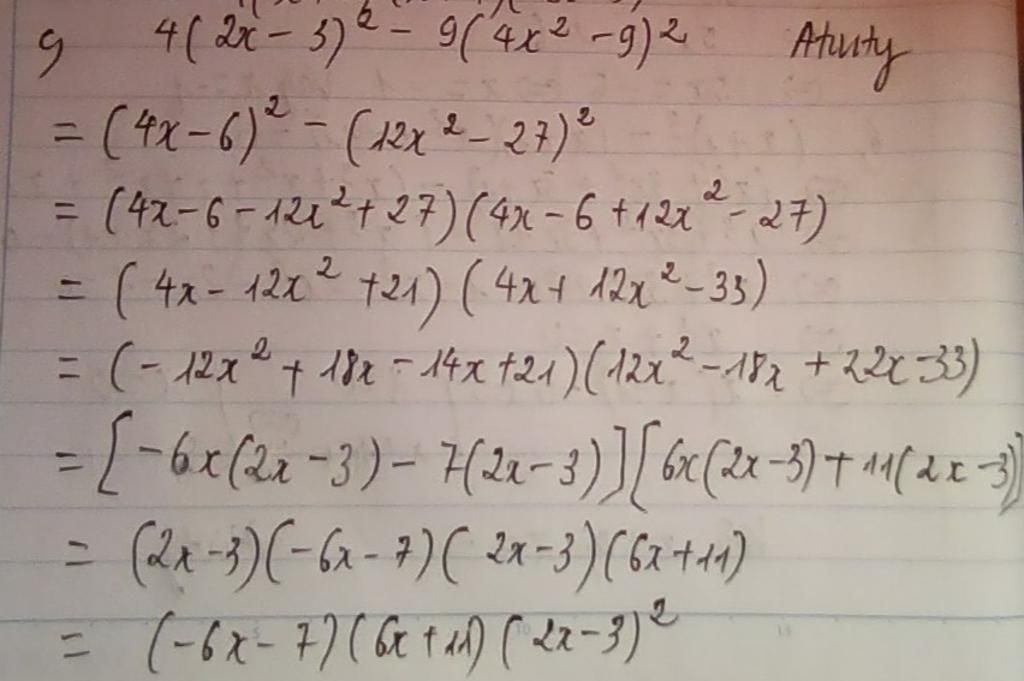 g 4(2x-3)² - 9(4x² - 9)² Atuty
= (4x-6)² - (12x² - 27)²
= (4x-6-12x²+27)(4x-6+12x²-27)
= (4x-12x²+21)(4x+12x²-33)
= (-12x²+18x-14x+21)(12x²-18x+22x-33)
= [-6x(2x-3)-7(2x-3)][6x(2x-3)+11(2x-3)]
= (2x-3)(-6x-7)(2x-3)(6x+11)
= (-6x-7)(6x+11)(2x-3)²